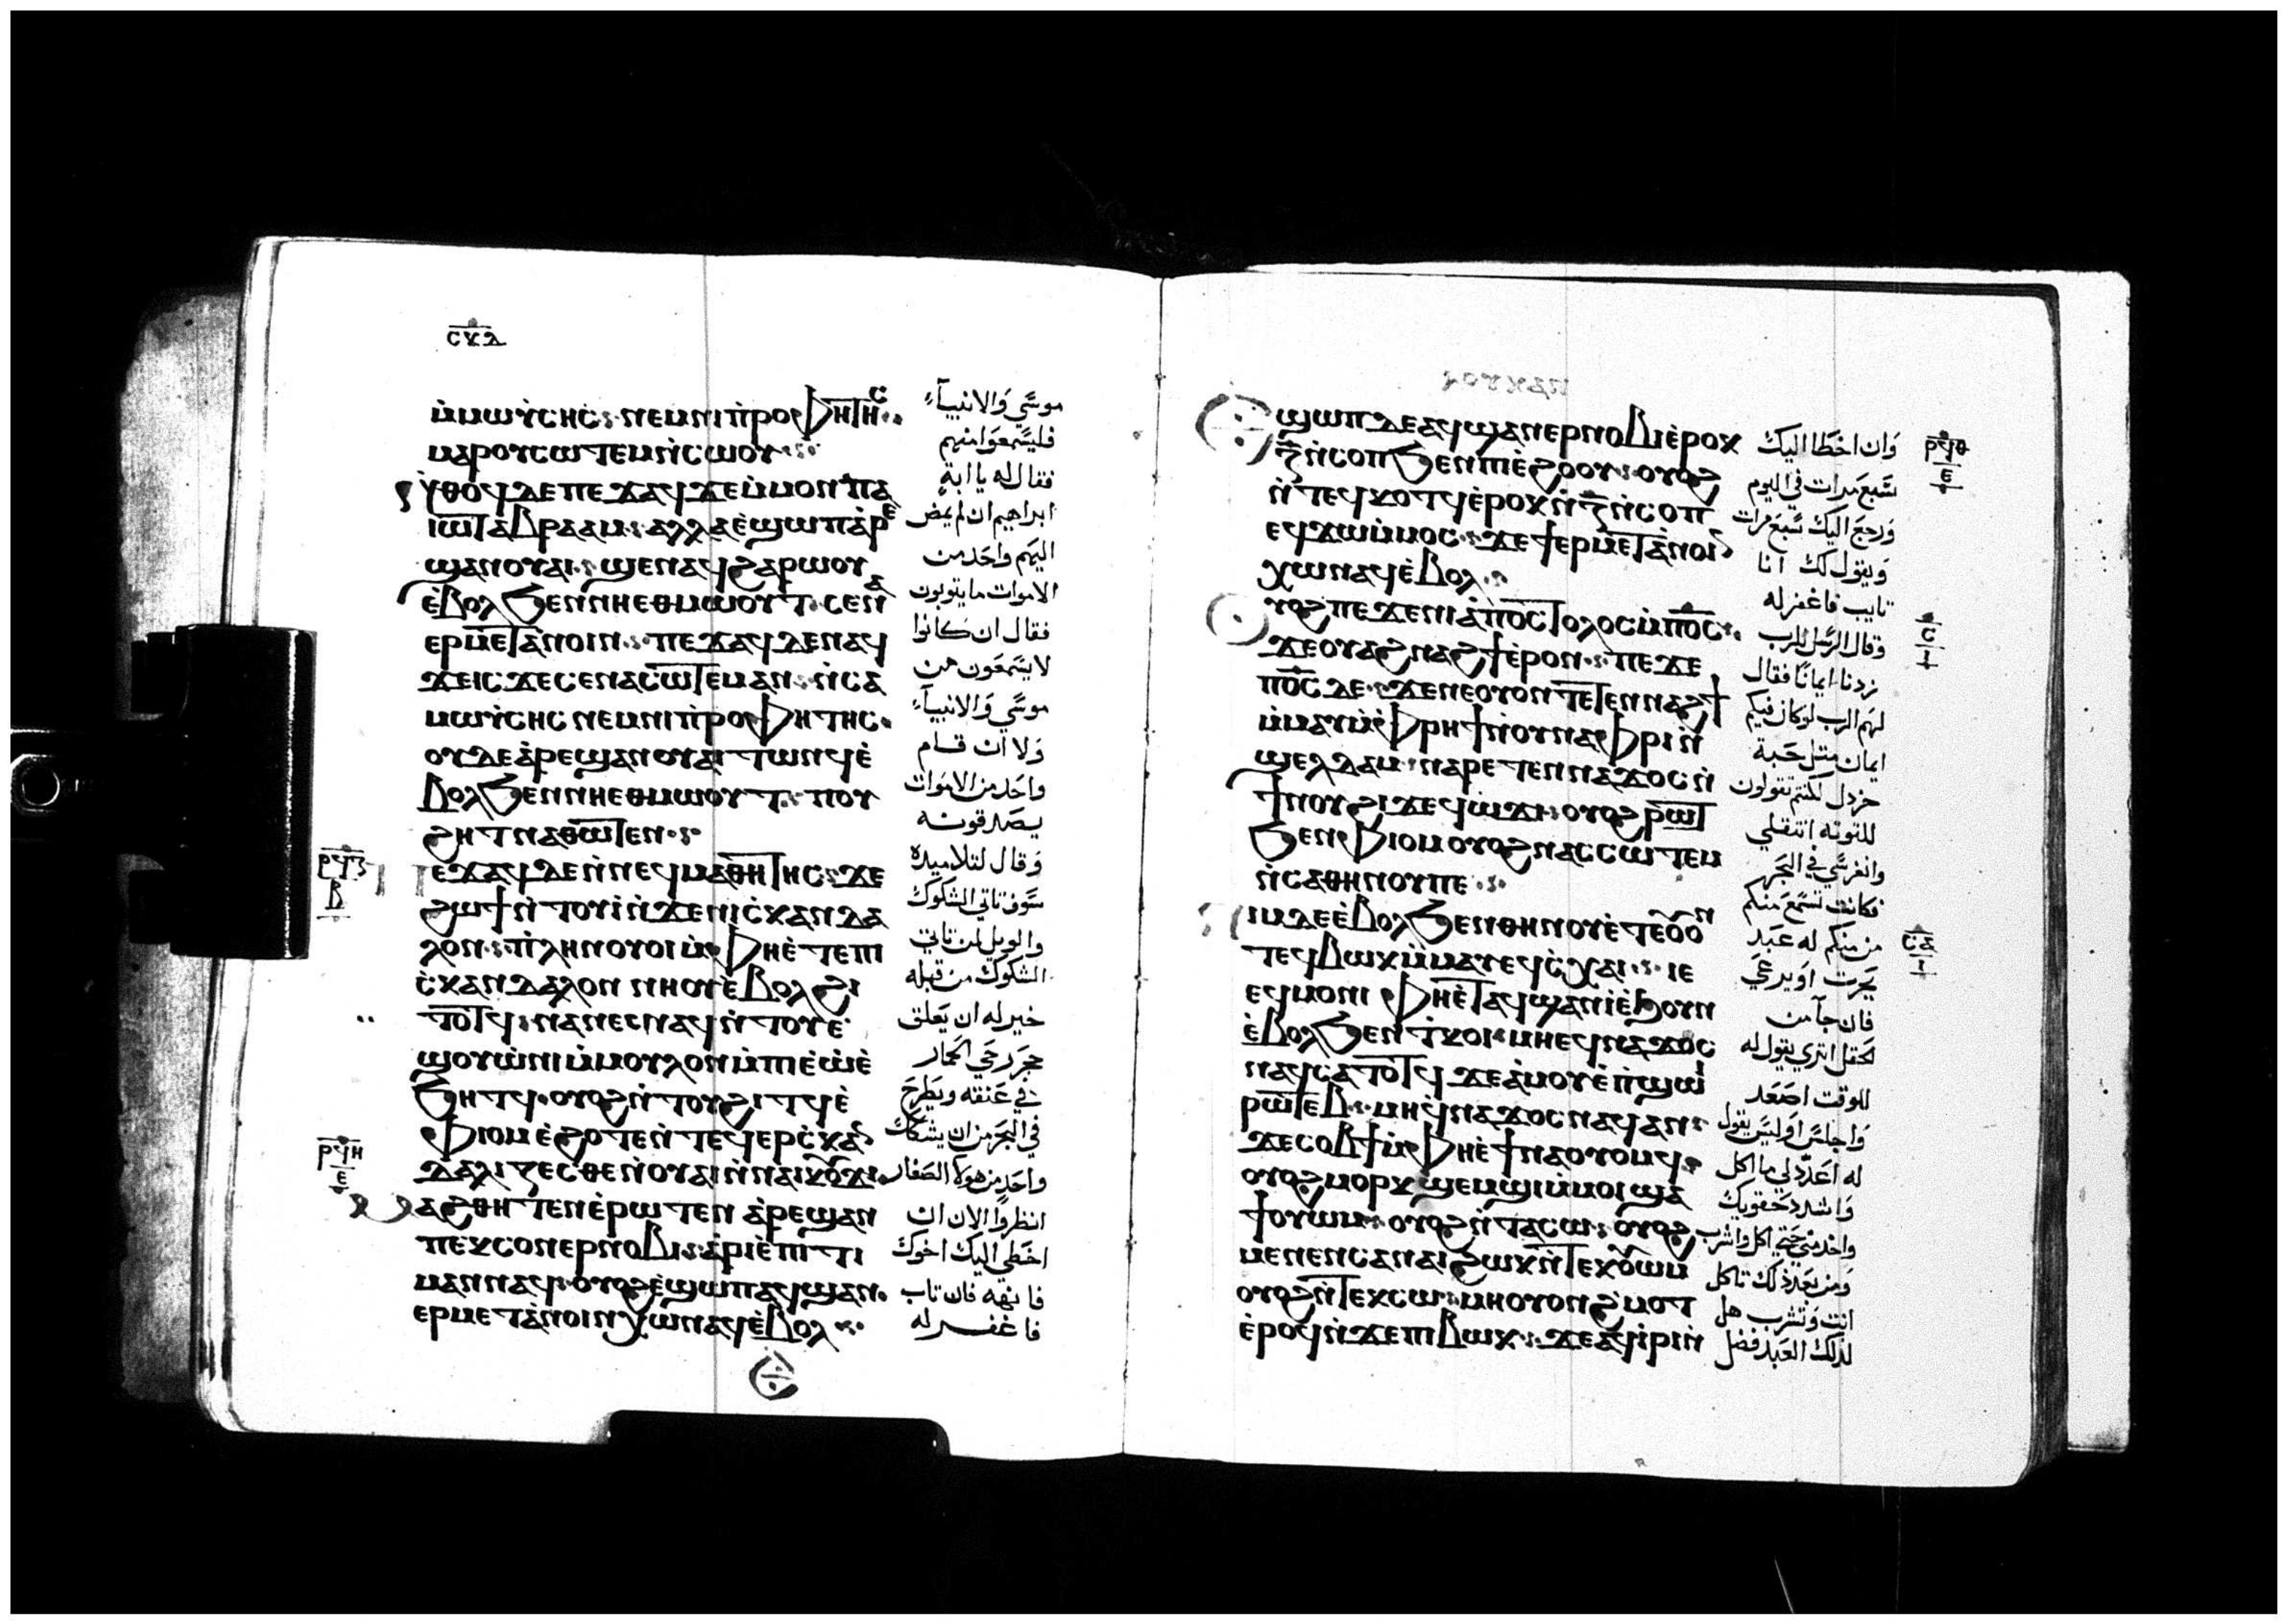 ⲥⲩⲇ
ⲙ̀ⲙⲱⲩ̀ⲥⲏⲥ ⲛⲉⲙⲛⲓⲡ̀ⲣⲟⲫⲏⲧⲏⲥ
ⲙⲁⲣⲟⲩⲥⲱⲧⲉⲙⲛ̀ⲥⲱⲟⲩ
ⲛ̀ⲑⲟϥⲇⲉⲡⲉϫⲁϥϫⲉⲙ̀ⲙⲟⲛⲡⲁ
ⲓⲱⲧⲁⲃⲣⲁⲁⲙ ⲁⲗⲗⲁⲉ̀ϣⲱⲡⲁ̀ⲣⲉ
ϣⲁⲛⲟⲩⲁⲓ ϣⲉⲛⲁϥϩⲁⲣⲱⲟⲩ
ⲉ̀ⲃⲟⲗϧⲉⲛⲛⲏⲉⲑⲙⲱⲟⲩⲧ ⲥⲉⲛⲁ
ⲉⲣⲙⲉⲧⲁ̀ⲛⲟⲓⲛ ⲡⲉϫⲁϥⲇⲉⲛⲁϥ
ϫⲉⲓⲥϫⲉⲥⲉⲛⲁⲥⲱⲧⲉⲙⲁⲛ ⲛ̀ⲥⲁ
ⲙⲱⲩ̀ⲥⲏⲥⲛⲉⲙⲛⲓⲡ̀ⲣⲟⲫⲏⲧⲏⲥ
ⲟⲩⲇⲉⲁ̀ⲣⲉϣⲁⲛⲟⲩⲁⲓⲧⲱⲛϥⲉ̀
ⲃⲟⲗϧⲉⲛⲛⲏⲉⲑⲙⲱⲟⲩⲧ ⲡⲟⲩ
ϩⲏⲧⲛⲁⲑⲱⲧⲉⲛ
ⲣϥⲍ
ⲃ
ⲡⲉϫⲁϥⲇⲉⲛ̀ⲛⲉϥⲙⲁⲑⲏⲧⲏⲥ ϫⲉ
ϩⲱϯⲛ̀ⲧⲟⲩⲓ̀ⲛ̀ϫⲉⲛⲓⲥ̀ⲕⲁⲛⲇⲁ
ⲗⲟⲛ ⲡⲗⲏⲛⲟⲩⲟⲓⲙ̀ⲫⲏⲉ̀ⲧⲉⲡⲓ
ⲥ̀ⲕⲁⲛⲇⲁⲗⲟⲛⲛⲏⲟⲩⲉ̀ⲃⲟⲗϩⲓ
ⲧⲟⲧϥ ⲛⲁⲛⲉⲥⲛⲁϥⲛ̀ⲧⲟⲩⲉ
ϣⲟⲩⲱ̀ⲛⲓⲙ̀ⲙⲟⲩⲗⲟⲛⲙ̀ⲡⲉϥⲉ̀
ϧⲏⲧϥ ⲟⲩⲟϩⲛ̀ⲧⲟⲩϩⲓⲧϥⲉ̀
ⲫⲓⲟⲙⲉ̀ϩⲟⲧⲉⲛ̀ⲧⲉϥⲉⲣⲥ̀ⲕⲁⲛ
ⲇⲁⲗⲓⲍⲉⲥⲑⲉⲛ̀ⲟⲩⲁⲓⲛ̀ⲛⲁⲓⲕⲟⲩϫⲓ
ⲣϥⲏ
ⲉ
ⲙⲁϩⲑⲏⲧⲉⲛⲉ̀ⲣⲱⲧⲉⲛ ⲁ̀ⲣⲉϣⲁⲛ
ⲡⲉⲕⲥⲟⲛⲉⲣⲛⲟⲃⲓ ⲁ̀ⲣⲓⲉ̀ⲡⲓⲧⲓ
ⲙⲁⲛⲛⲁϥ ⲟⲩⲟϩⲉ̀ϣⲱⲡⲁϥϣⲁⲛ
ⲉⲣⲙⲉⲧⲁ̀ⲛⲟⲓⲛⲭⲱⲛⲁϥⲉ̀ⲃⲟⲗ
موسَي وَالانبيآء
فليسَمعَوا منهم
فقال له يا ابة
ابراهيم ان لم يمض
اليهم واحَد من
الاموات ما يتوبون
فقال ان كانوا
لا يسَمعَون من
موسَي وَالانبيآء
وَلا ان قام
واحَد من الاموات
يصَدقونه
وَقال لتلاميده
سَوف تاتي الشكوك
والويل لمن تاتي
الشكوك من قبله
خير له ان يَعلق
حجَر رحَي الحمار
في عَنقه ويَطرحَ
في البحَر من ان يشكك
واحَد من هولآ الصَغار
انظروا الان ان
اخطي اليك اخوك
فانهه فان تاب
فاغفر له
ⲉ̀ϣⲱⲡⲇⲉⲁϥϣⲁⲛⲉⲣⲛⲟⲃⲓⲉ̀ⲣⲟⲕ
ⲍ̄ⲛ̀ⲥⲟⲡϧⲉⲛⲡⲓⲉ̀ϩⲟⲟⲩ ⲟⲩⲟϩ
ⲛ̀ⲧⲉϥⲕⲟⲧϥⲉ̀ⲣⲟⲕⲛ̀ⲍ̄ⲛ̀ⲥⲟⲡ
ⲉϥϫⲱⲙ̀ⲙⲟⲥ ϫⲉϯⲉⲣⲙⲉⲧⲁ̀ⲛⲟⲓⲛ
ⲭⲱⲛⲁϥⲉ̀ⲃⲟⲗ
ⲟⲩⲟϩⲡⲉϫⲉⲛⲓⲁ̀ⲡⲟⲥⲧⲟⲗⲟⲥⲙ̀ⲡⲟ̄ⲥ̄
ϫⲉⲟⲩⲁϩⲛⲁϩϯⲉ̀ⲣⲟⲛ ⲡⲉϫⲉ
ⲡⲟ̄ⲥ̄ⲇⲉ ϫⲉⲛⲉⲟⲩⲟⲛⲧⲉⲧⲉⲛⲛⲁϩϯ
ⲙ̀ⲙⲁⲩⲙ̀ⲫⲣⲏϯⲛ̀ⲟⲩⲛⲁⲫⲣⲓⲛ̀
ϣⲉⲗⲧⲁⲙ ⲛⲁⲣⲉⲧⲉⲛⲛⲁϫⲟⲥⲛ̀
ϯⲛⲟⲩϩⲓϫⲉϥⲱ̀ϫⲓ ⲟⲩⲟϩⲣⲱⲧ
ϧⲉⲛⲫⲓⲟⲙⲟⲩⲟϩⲛⲁⲥⲥⲱⲧⲉⲙ
ⲛ̀ⲥⲁⲑⲏⲛⲟⲩⲡⲉ
ⲛⲓⲙⲇⲉⲉ̀ⲃⲟⲗϧⲉⲛⲑⲏⲛⲟⲩⲉ̀ⲧⲉⲟⲩⲟⲛ
ⲧⲉϥⲃⲱⲕⲙ̀ⲙⲁⲩⲉϥⲥ̀ⲭⲁⲓ ⲓⲉ
ⲉϥⲙⲟⲛⲓ ⲫⲏⲉ̀ⲧⲁϥϣⲁⲛⲓ̀ⲉ̀ϧⲟⲩⲛ
ⲉ̀ⲃⲟⲗϧⲉⲛⲧ̀ⲕⲟⲓ ⲙⲏⲉϥⲛⲁϫⲟⲥ
ⲛⲁϥⲥⲁⲧⲟⲧϥ ϫⲉⲁ̀ⲙⲟⲩⲉ̀ⲡ̀ϣⲱⲓ
ⲣⲱⲧⲉⲃ ⲙⲏϥ̀ⲛⲁϫⲟⲥⲛⲁϥⲁⲛ
ϫⲉⲥⲟⲃϯⲙ̀ⲫⲏⲉ̀ϯⲛⲁⲟⲩⲟⲙϥ
ⲟⲩⲟϩⲙⲟⲣⲕ ϣⲉⲙϣⲓⲙ̀ⲙⲟⲓϣⲁ
ϯⲟⲩⲱⲙ ⲟⲩⲟϩⲛ̀ⲧⲁⲥⲱ ⲟⲩⲟϩ
ⲙⲉⲛⲉⲛⲥⲁⲛⲁⲓϩⲱⲕⲛ̀ⲧⲉⲕⲟⲩⲱⲙ
ⲟⲩⲟϩⲛ̀ⲧⲉⲕⲥⲱ ⲙⲏⲟⲩⲟⲛϩ̀ⲙⲟⲧ
ⲉ̀ⲣⲟϥⲛ̀ϫⲉⲡⲓⲃⲱⲕ ϫⲉⲁϥⲓ̀ⲣⲓⲛ̀
وَان اخطا اليك
سَبع مَرات في اليوم
وَرجَع اليك سَبع مَرات
وَيقول لك انا
تايب فاغفر له
وقال الرسَل للرب
زدنا ايمانًا فقال
لهم الرب لو كان فيكم
ايمان متل حَبة
خردل لكنتم تقولون
للتوته انتقلي
وانغرسَي في البحَر
فكانت تسَمع منكم
من منكم له عَبد
يحَرت اوَ يرعَي
فان جآ من
الحقل اتري يقول له
للوقت اصَعَد
وَاجلسَ اوَ ليسَ يقول
له اعَدد لي ما اكل
وَاشدد حَقويك
واخدمني حَتي اكل واشرب
وَمن بعَد ذلك تاكل
انت وَتشرب هل
لذلك العبد فضل
ⲣϥⲑ
ⲉ
ⲥ
ⲓ
ⲥⲁ
ⲓ